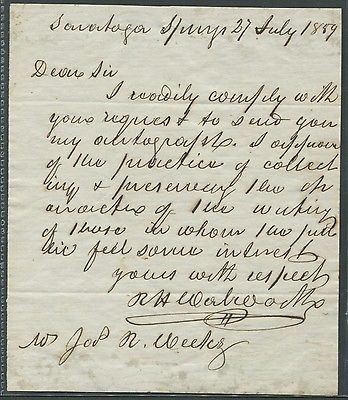 Saratoga Springs 27 July 1859
Dear Sir
I readily comply with
your request to send you
my autograph. I approve
of the practice of collect
ing & preserving the ch
aracter of the writing
of those in whom the pub
lic feel some interest
yours with respect
R H Walworth
Mr Jos R. Weeks